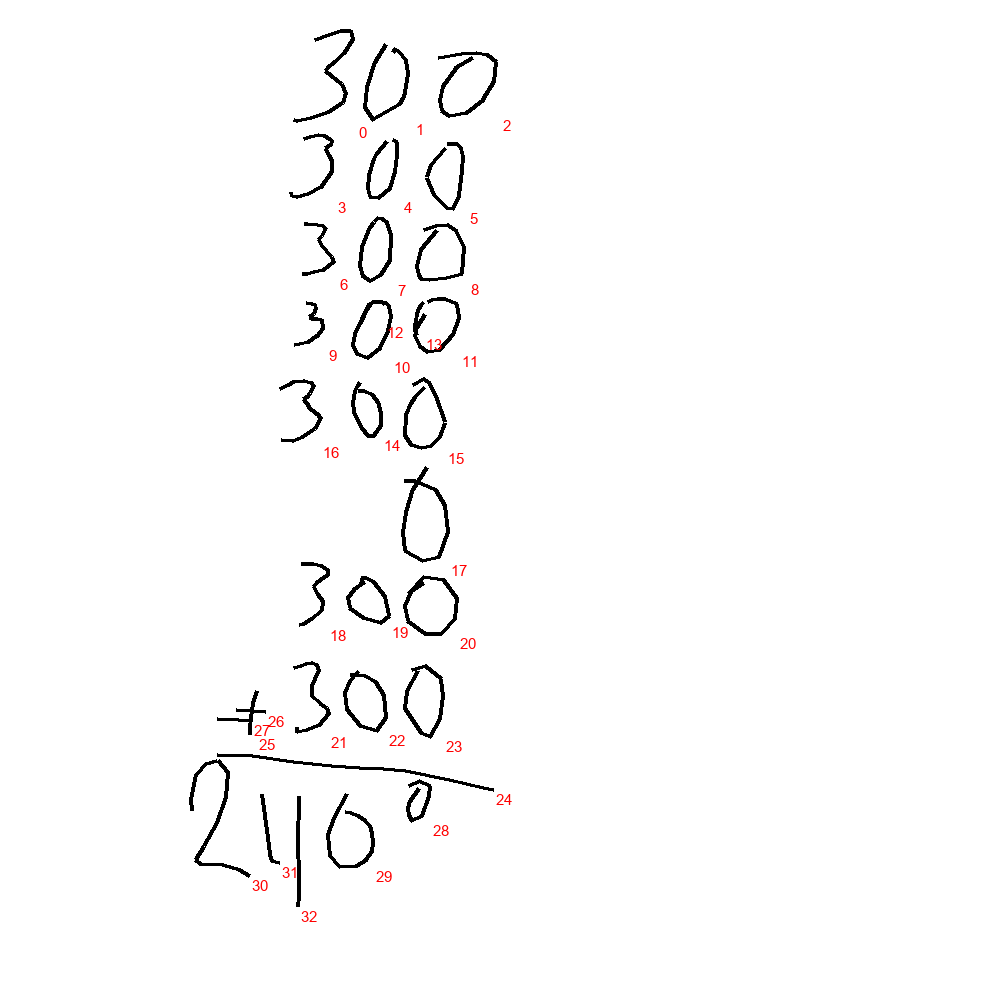 300
0 1 2
300
3 4 5
300
6 7 8
300
12 13
9 10 11
300
16 14 15
0
17
300
18 19 20
+ 300
26
27
25 21 22 23
24
2400
28
31 29
30
32